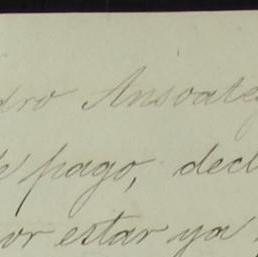 dro Ansoate
de pago, decl
or estar ya